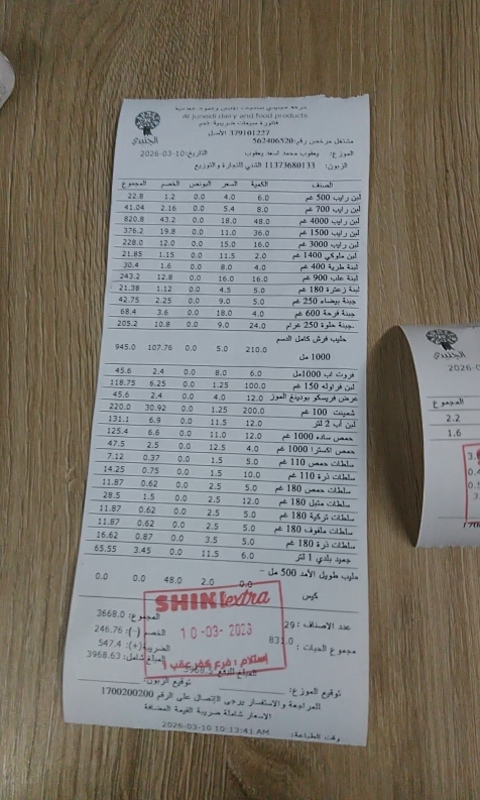 Al Juneidi dairy and food products
فاتورة مبيعات ضريبية
379101227 الأصل
الجنيدي
مشتغل مرخص رقم: 562406520
الموزع: يعقوب محمد اسعد يعقوب
التاريخ: 2026-03-10
الزبون: 11373680133 الشني للتجارة والتوزيع
الصنف الكمية السعر البونص الخصم المجموع
لبن رايب 500 غم 6.0 4.0 0.0 1.2 22.8
لبن رايب 700 غم 8.0 5.4 0.0 2.16 41.04
لبن رايب 4000 غم 48.0 18.0 0.0 43.2 820.8
لبن رايب 1500 غم 36.0 11.0 0.0 19.8 376.2
لبن رايب 3000 غم 16.0 15.0 0.0 12.0 228.0
لبن ملوكي 1400 غم 2.0 11.5 0.0 1.15 21.85
لبنة طرية 400 غم 8.0 4.0 0.0 1.6 30.4
لبنة علب 900 غم 16.0 16.0 0.0 12.8 243.2
لبنة زعترة 180 غم 5.0 4.5 0.0 1.12 21.38
جبنة بيضاء 250 غم 9.0 5.0 0.0 2.25 42.75
جبنة فرحة 600 غم 4.0 18.0 0.0 3.6 68.4
جبنة حلوة 250 غرام 24.0 9.0 0.0 10.8 205.2
حليب فرش كامل الدسم 1000 مل 210.0 5.0 0.0 107.76 945.0
فروت اب 1000مل 6.0 8.0 0.0 2.4 45.6
لبن فراوله 150 غم 100.0 1.25 0.0 6.25 118.75
عرض فريسكو بودينغ الموز 12.0 4.0 0.0 2.4 45.6
شمينت 100 غم 200.0 1.25 0.0 30.92 220.0
لبن أب 2 لتر 12.0 11.5 0.0 6.9 131.1
حمص ساده 1000 غم 12.0 11.0 0.0 6.6 125.4
حمص اكسترا 1000 غم 4.0 12.5 0.0 2.5 47.5
سلطات حمص 110 غم 5.0 1.5 0.0 0.37 7.12
سلطات ذرة 110 غم 10.0 1.5 0.0 0.75 14.25
سلطات حمص 180 غم 5.0 2.5 0.0 0.62 11.87
سلطات متبل 180 غم 12.0 2.5 0.0 1.5 28.5
سلطات تركية 180 غم 5.0 2.5 0.0 0.62 11.87
سلطات ملفوف 180 غم 5.0 2.5 0.0 0.62 11.87
سلطات ذرة 180 غم 5.0 3.5 0.0 0.87 16.62
جميد بلدي 1 لتر 6.0 11.5 0.0 3.45 65.55
حليب طويل الأمد 500 مل - كيس 0.0 2.0 48.0 0.0 0.0
عدد الاصناف: 29 المجموع: 3668.0
مجموع الحبات: 831.0 الخصم (-): 246.76
الضريبة(+): 547.4
المبلغ شامل: 3968.63
SHINI extra
10-03-2026
إستلام / فرع كفر عقب 1
توقيع الموزع: توقيع الزبون:
للمراجعة والاستفسار يرجى الإتصال على الرقم 1700200200
الاسعار شاملة ضريبة القيمة المضافة
وقت الطباعة: 2026-03-10 10:13:41 AM
الجنيدي
المجموع
2.2
1.6